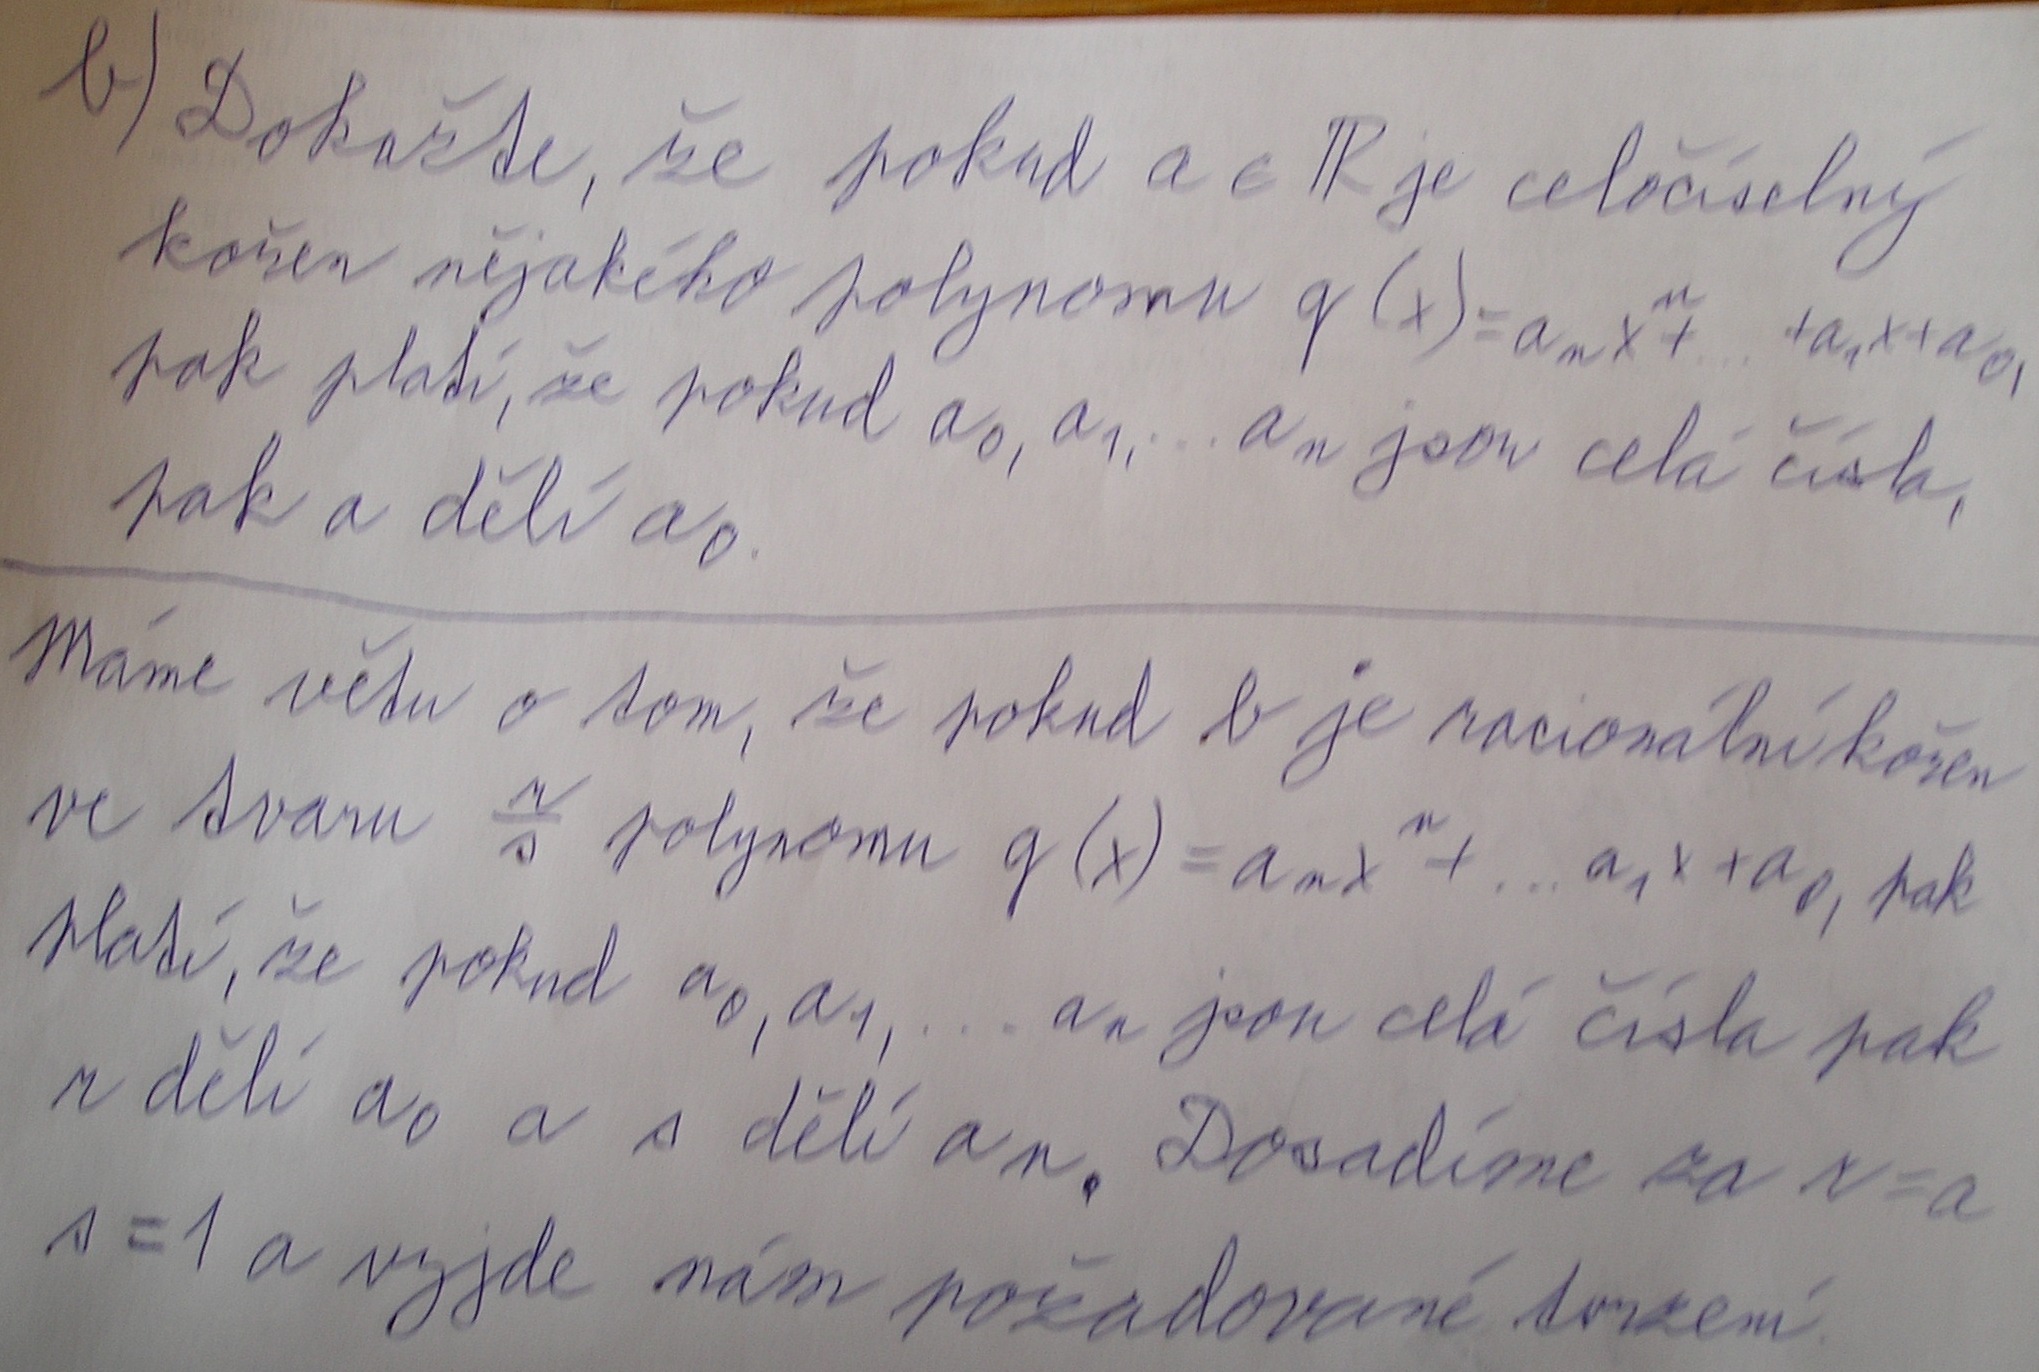 b) Dokažte, že pokud a ∈ ℝ je celočíselný
kořen nějakého polynomu q(x)=aₙxⁿ+... +a₁x+a₀,
pak platí, že pokud a₀, a₁,... aₙ jsou celá čísla,
pak a dělí a₀.
Máme větu o tom, že pokud b je racionální kořen
ve tvaru r/s polynomu q(x)=aₙxⁿ+...a₁x+a₀, pak
platí, že pokud a₀,a₁,....aₙ jsou celá čísla pak
r dělí a₀ a s dělí aₙ. Dosadíme za r=a
s=1 a vyjde nám požadované tvrzení.